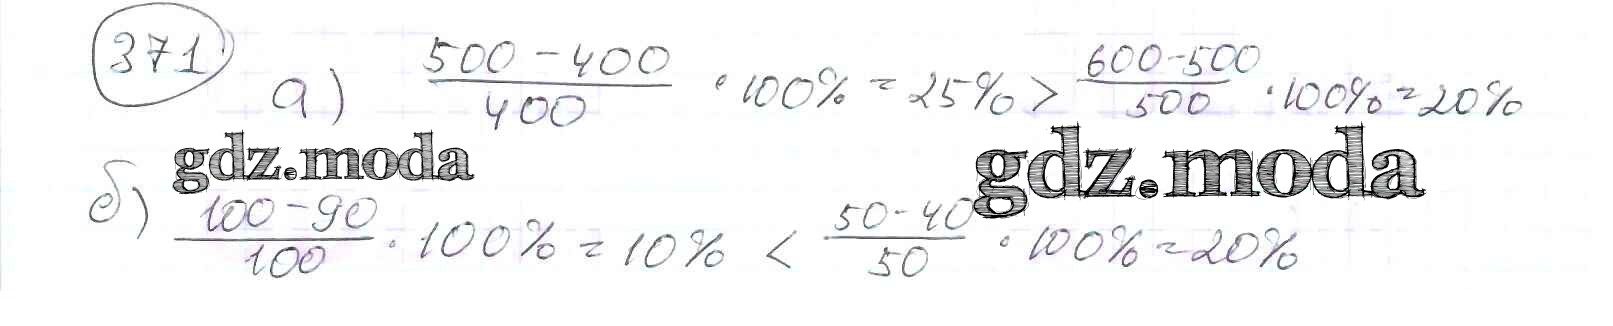 371
а) (500 - 400)/400 · 100% = 25% > (600 - 500)/500 · 100% = 20%
gdz.moda gdz.moda
б) (100 - 90)/100 · 100% = 10% < (50 - 40)/50 · 100% = 20%